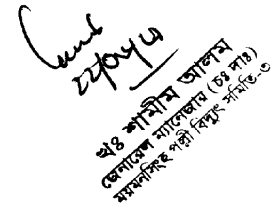 খঃ শামীম আলম
জেনারেল ম্যানেজার (চঃ দাঃ)
ময়মনসিংহ পল্লী বিদ্যুৎ সমিতি-৩